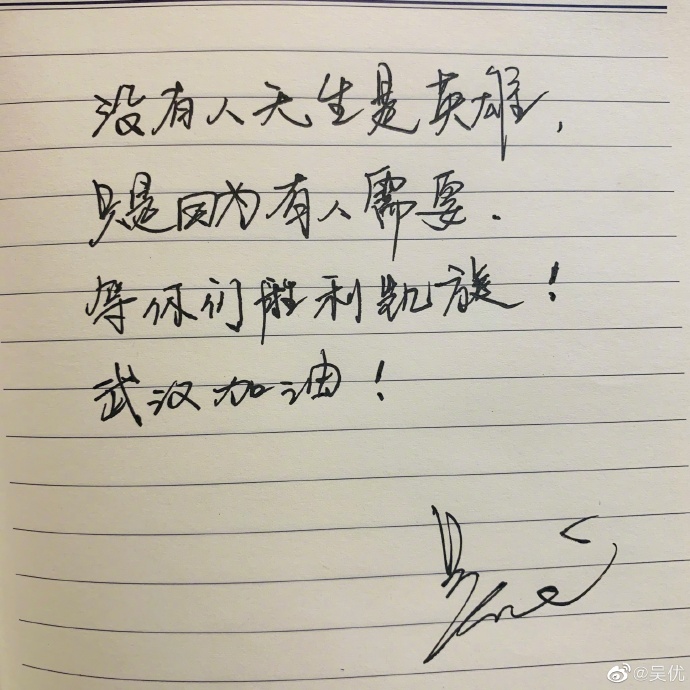 没有人天生是英雄，
只是因为有人需要．
等你们胜利凯旋！
武汉加油！
@吴优